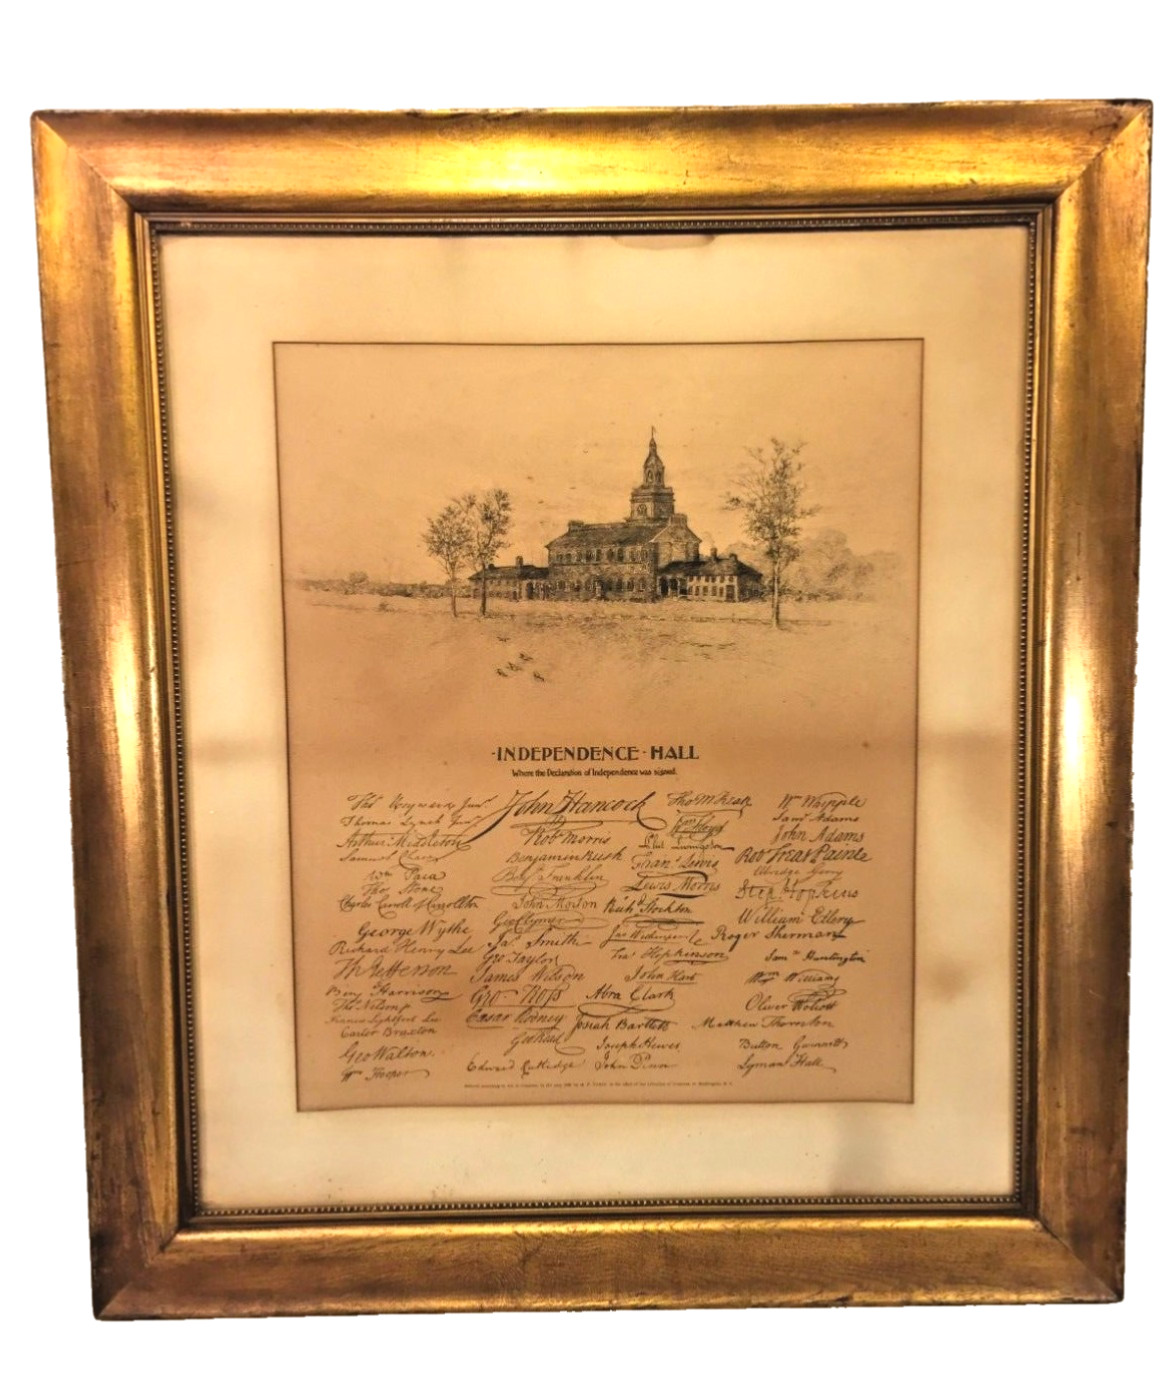 ·INDEPENDENCE·HALL
Where the Declaration of Independence was signed.
Thos Heyward Junr.
Thomas Lynch Junr.
Arthur Middleton
Samuel Chase
Wm Paca
Thos Stone
Charles Carroll of Carrollton
George Wythe
Richard Henry Lee
Th Jefferson
Benj Harrison
Thos Nelson jr
Francis Lightfoot Lee
Carter Braxton
Geo Walton.
Wm Hooper
John Hancock
Robt Morris
Benjamin Rush
Benj. Franklin
John Morton
Geo Clymer
Jas. Smith
Geo Taylor
James Wilson
Geo Ross
Caesar Rodney
Geo Read
Edward Rutledge
Thos M:Kean
Wm Floyd
Phil. Livingston
Frans. Lewis
Lewis Morris
Richd Stockton
Jno Witherspoon
Fras. Hopkinson
John Hart
Abra Clark
Josiah Bartlett
Joseph Hewes
John Penn
Wm Whipple
Saml Adams
John Adams
Robt Treat Paine
Elbridge Gerry
Step. Hopkins
William Ellery
Roger Sherman
Saml Huntington
Wm Williams
Oliver Wolcott
Matthew Thornton
Button Gwinnett
Lyman Hall